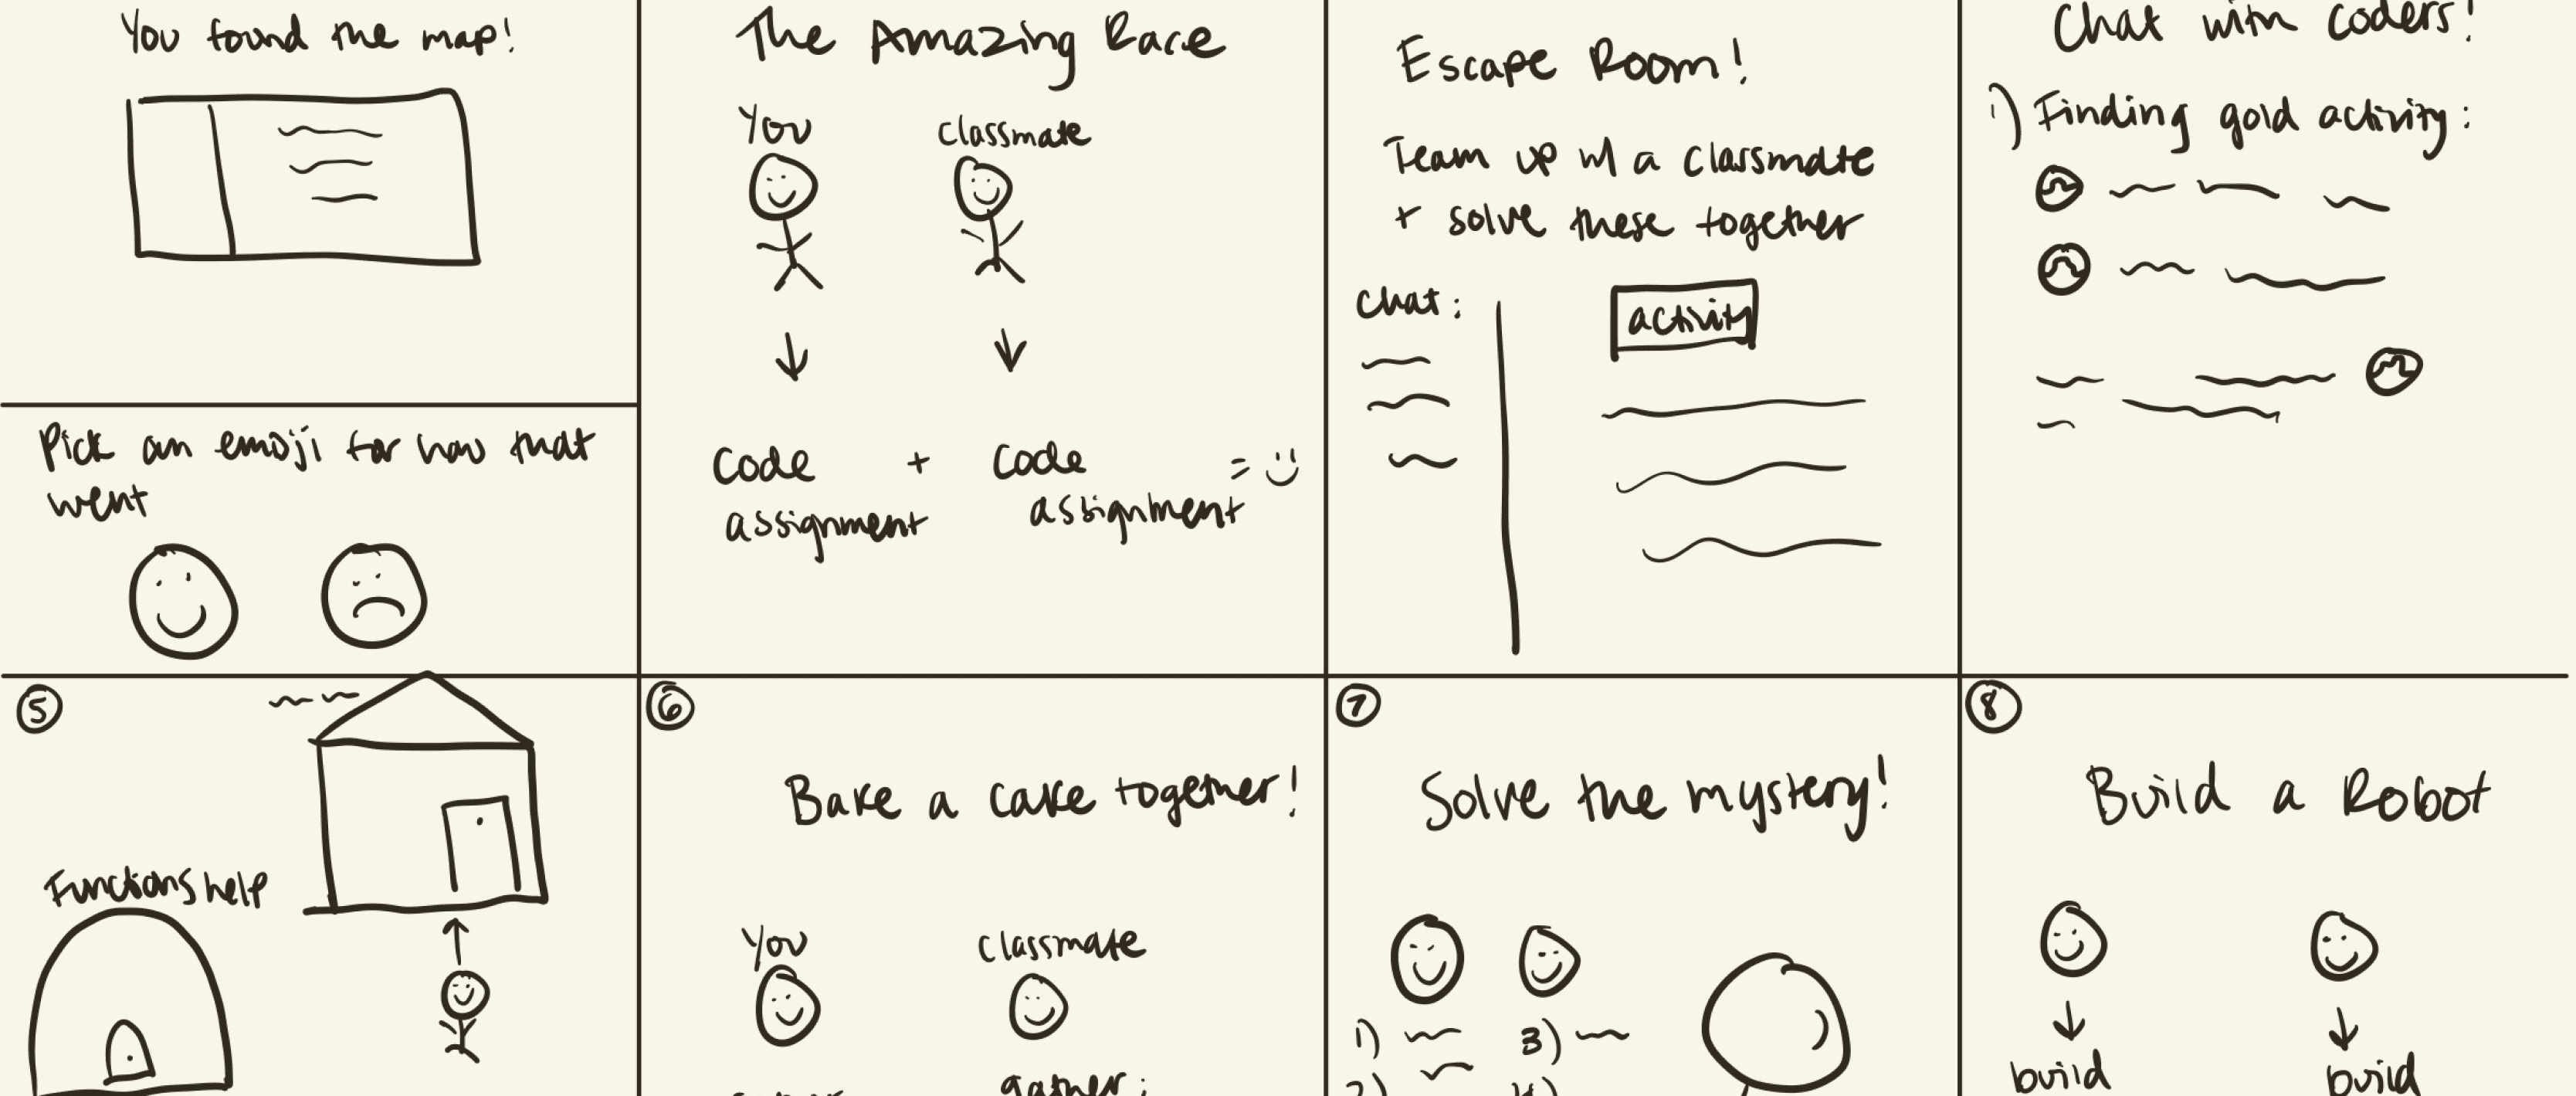 You found the map!
Pick an emoji for how that
went
The Amazing Race
You
classmate
Code + Code = :)
assignment assignment
Escape Room!
Team up w/ a classmate
+ solve these together
Chat:
activity
Chat with coders!
1) Finding gold activity:
5
Functions help
6
Bake a cake together!
You
classmate
gather:
7
Solve the mystery!
1) 3)
2) 4)
8
Build a Robot
build build